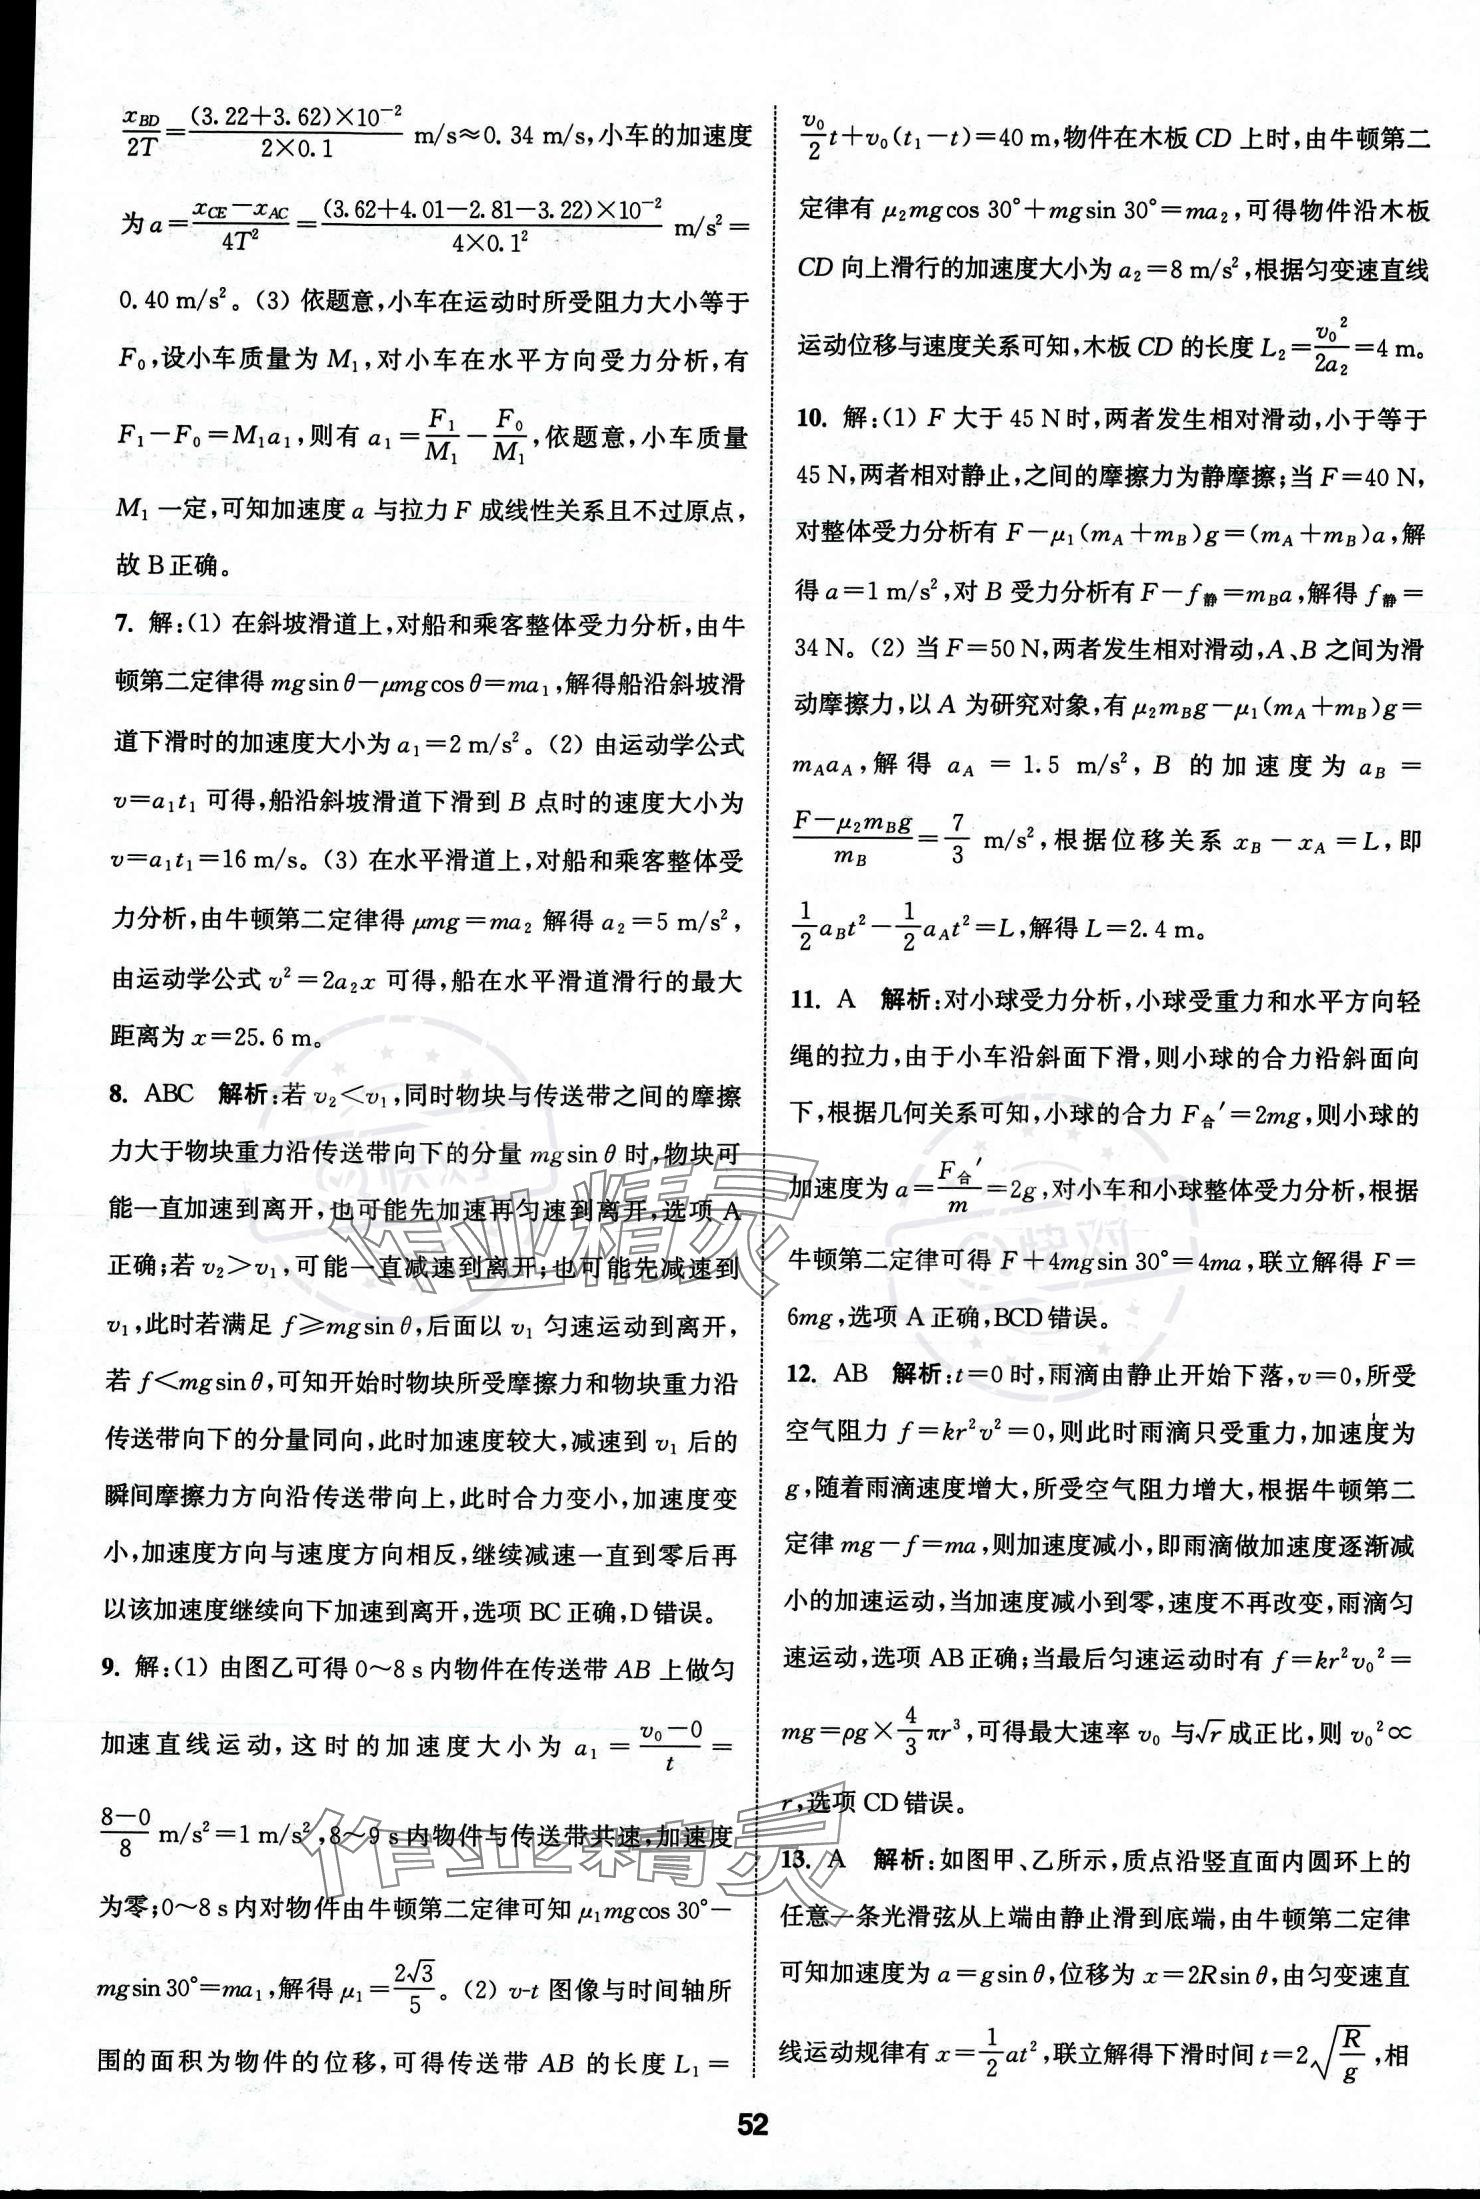 x_BD/2T=(3.22+3.62)×10⁻²/2×0.1 m/s≈0.34 m/s,小车的加速度
为a=x_CE−x_AC/4T²=(3.62+4.01−2.81−3.22)×10⁻²/4×0.1² m/s²=
0.40 m/s²。(3) 依题意,小车在运动时所受阻力大小等于
F₀,设小车质量为 M₁,对小车在水平方向受力分析,有
F₁−F₀=M₁a₁,则有 a₁=F₁/M₁−F₀/M₁,依题意,小车质量
M₁ 一定,可知加速度 a 与拉力 F 成线性关系且不过原点,
故 B 正确。
7. 解:(1) 在斜坡滑道上,对船和乘客整体受力分析,由牛
顿第二定律得 mgsin θ−μmgcos θ=ma₁,解得船沿斜坡滑
道下滑时的加速度大小为 a₁=2 m/s²。(2) 由运动学公式
v=a₁t₁ 可得,船沿斜坡滑道下滑到 B 点时的速度大小为
v=a₁t₁=16 m/s。(3) 在水平滑道上,对船和乘客整体受
力分析,由牛顿第二定律得 μmg=ma₂ 解得 a₂=5 m/s²,
由运动学公式 v²=2a₂x 可得,船在水平滑道滑行的最大
距离为 x=25.6 m。
8. ABC 解析:若 v₂<v₁,同时物块与传送带之间的摩擦
力大于物块重力沿传送带向下的分量 mgsin θ 时,物块可
能一直加速到离开,也可能先加速再匀速到离开,选项 A
正确;若 v₂>v₁,可能一直减速到离开;也可能先减速到
v₁,此时若满足 f⩾mgsin θ,后面以 v₁ 匀速运动到离开,
若 f<mgsin θ,可知开始时物块所受摩擦力和物块重力沿
传送带向下的分量同向,此时加速度较大,减速到 v₁ 后的
瞬间摩擦力方向沿传送带向上,此时合力变小,加速度变
小,加速度方向与速度方向相反,继续减速一直到零后再
以该加速度继续向下加速到离开,选项 BC 正确,D 错误。
9. 解:(1) 由图乙可得 0~8 s 内物件在传送带 AB 上做匀
加速直线运动,这时的加速度大小为 a₁=v₀−0/t=
8−0/8 m/s²=1 m/s²,8~9 s 内物件与传送带共速,加速度
为零;0~8 s 内对物件由牛顿第二定律可知 μ₁mgcos 30°−
mgsin 30°=ma₁,解得 μ₁=2√3/5。(2) v-t 图像与时间轴所
围的面积为物件的位移,可得传送带 AB 的长度 L₁=
v₀/2 t+v₀(t₁−t)=40 m,物件在木板 CD 上时,由牛顿第二
定律有 μ₂mgcos 30°+mgsin 30°=ma₂,可得物件沿木板
CD 向上滑行的加速度大小为 a₂=8 m/s²,根据匀变速直线
运动位移与速度关系可知,木板 CD 的长度 L₂=v₀²/2a₂=4 m。
10. 解:(1) F 大于 45 N 时,两者发生相对滑动,小于等于
45 N,两者相对静止,之间的摩擦力为静摩擦;当 F=40 N,
对整体受力分析有 F−μ₁(m_A+m_B)g=(m_A+m_B)a,解
得 a=1 m/s²,对 B 受力分析有 F−f静=m_Ba,解得 f静=
34 N。(2) 当 F=50 N,两者发生相对滑动,A、B 之间为滑
动摩擦力,以 A 为研究对象,有 μ₂m_Bg−μ₁(m_A+m_B)g=
m_Aa_A,解得 a_A=1.5 m/s²,B 的加速度为 a_B=
F−μ₂m_Bg/m_B=7/3 m/s²,根据位移关系 x_B−x_A=L,即
1/2 a_Bt²−1/2 a_At²=L,解得 L=2.4 m。
11. A 解析:对小球受力分析,小球受重力和水平方向轻
绳的拉力,由于小车沿斜面下滑,则小球的合力沿斜面向
下,根据几何关系可知,小球的合力 F合′=2mg,则小球的
加速度为 a=F合′/m=2g,对小车和小球整体受力分析,根据
牛顿第二定律可得 F+4mgsin 30°=4ma,联立解得 F=
6mg,选项 A 正确,BCD 错误。
12. AB 解析:t=0 时,雨滴由静止开始下落,v=0,所受
空气阻力 f=kr²v²=0,则此时雨滴只受重力,加速度为
g,随着雨滴速度增大,所受空气阻力增大,根据牛顿第二
定律 mg−f=ma,则加速度减小,即雨滴做加速度逐渐减
小的加速运动,当加速度减小到零,速度不再改变,雨滴匀
速运动,选项 AB 正确;当最后匀速运动时有 f=kr²v₀²=
mg=ρg×4/3 πr³,可得最大速率 v₀ 与√r成正比,则 v₀²∝
r,选项 CD 错误。
13. A 解析:如图甲、乙所示,质点沿竖直面内圆环上的
任意一条光滑弦从上端由静止滑到底端,由牛顿第二定律
可知加速度为 a=gsin θ,位移为 x=2Rsin θ,由匀变速直
线运动规律有 x=1/2 at²,联立解得下滑时间 t=2√(R/g),相
52
作业精灵
作业精灵
快对
快对